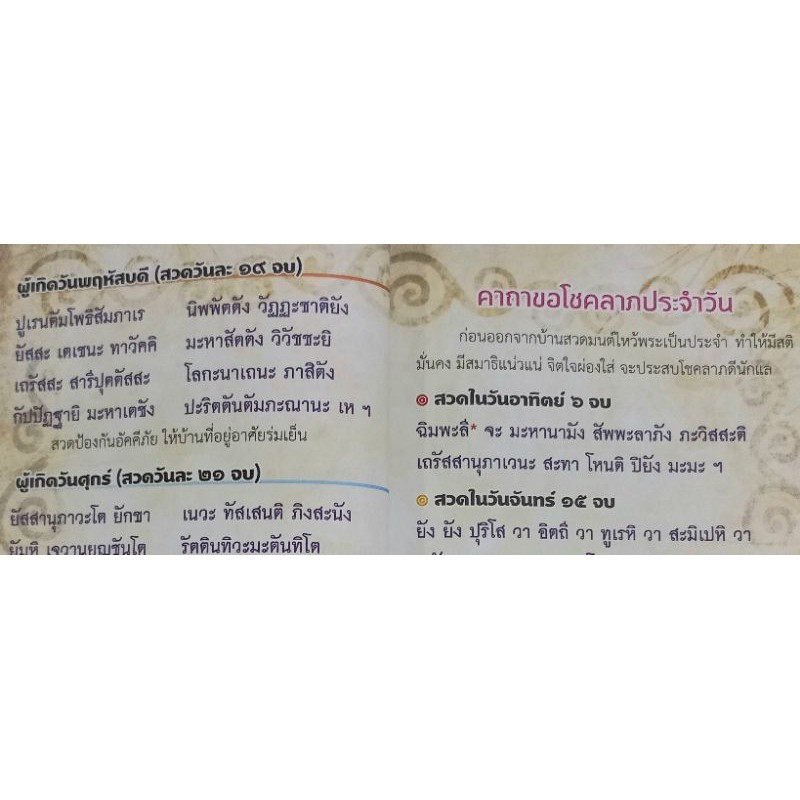 ผู้เกิดวันพฤหัสบดี (สวดวันละ ๑๙ จบ)
ปูเรนตัมโพธิสัมภาเร นิพพัตตัง วัฏฏะชาติยัง
ยัสสะ เตเชนะ ทาวัคคิ มะหาสัตตัง วิวัชชะยิ
เถรัสสะ สารีปุตตัสสะ โลกะนาเถนะ ภาสิตัง
กัปปัฏฐายิ มะหาเตชัง ปะริตตันตัมภะณานะ เห ฯ
สวดป้องกันอัคคีภัย ให้บ้านที่อยู่อาศัยร่มเย็น
ผู้เกิดวันศุกร์ (สวดวันละ ๒๑ จบ)
ยัสสานุภาวะโต ยักขา เนวะ ทัสเสนติ ภิงสะนัง
ยัมหิ เจวานุยุญชันโต รัตตินทิวะมะตันทิโต
คาถาขอโชคลาภประจำวัน
ก่อนออกจากบ้านสวดมนต์ไหว้พระเป็นประจำ ทำให้มีสติ
มั่นคง มีสมาธิแน่วแน่ จิตใจผ่องใส่ จะประสบโชคลาภดีนักแล
สวดในวันอาทิตย์ ๖ จบ
ฉิมพะลี* จะ มะหานามัง สัพพะลาภัง ภะวิสสะติ
เถรัสสานุภาเวนะ สะทา โหนติ ปิยัง มะมะ ฯ
สวดในวันจันทร์ ๑๕ จบ
ยัง ยัง ปุริโส วา อิตถี วา ทูเรหิ วา สะมีเปหิ วา